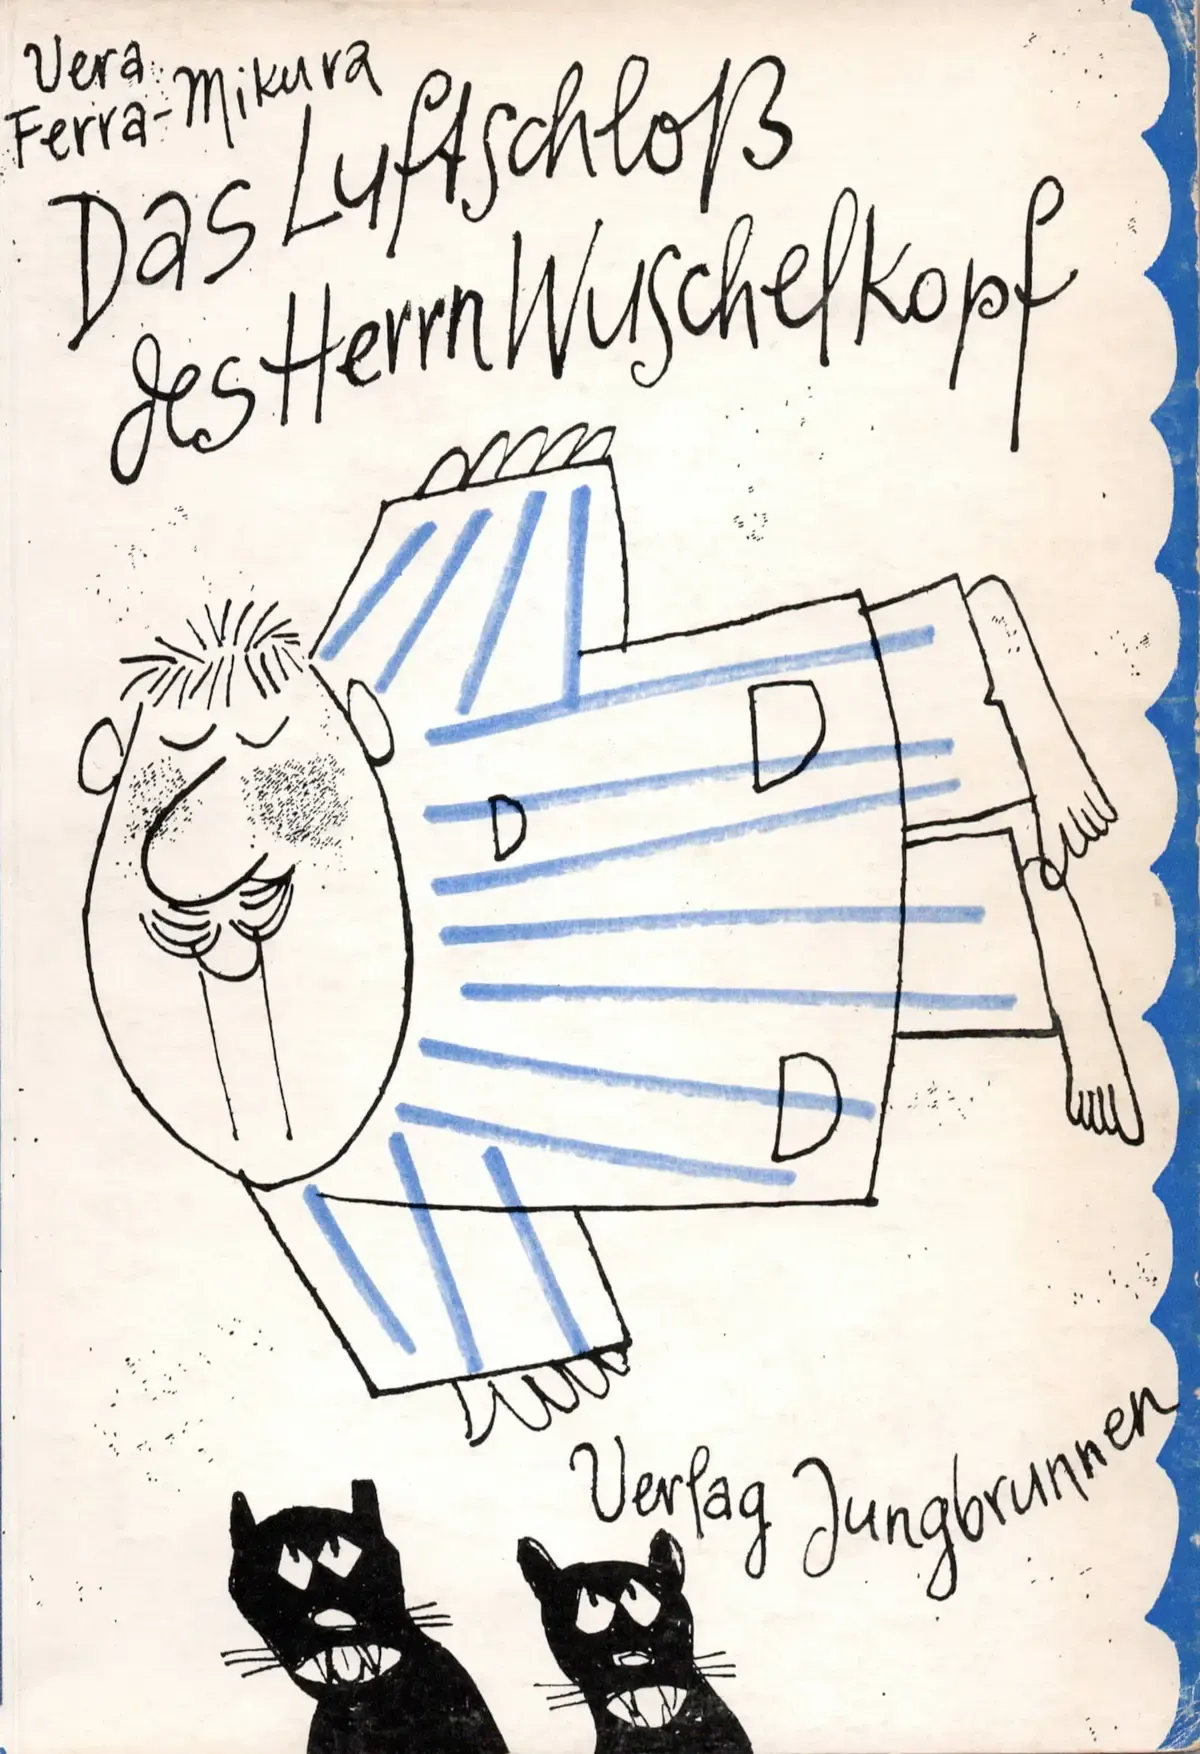 Vera
Ferra-Mikura
Das Luftschloß
des Herrn Wuschelkopf
D
D
D
Verlag Jungbrunnen